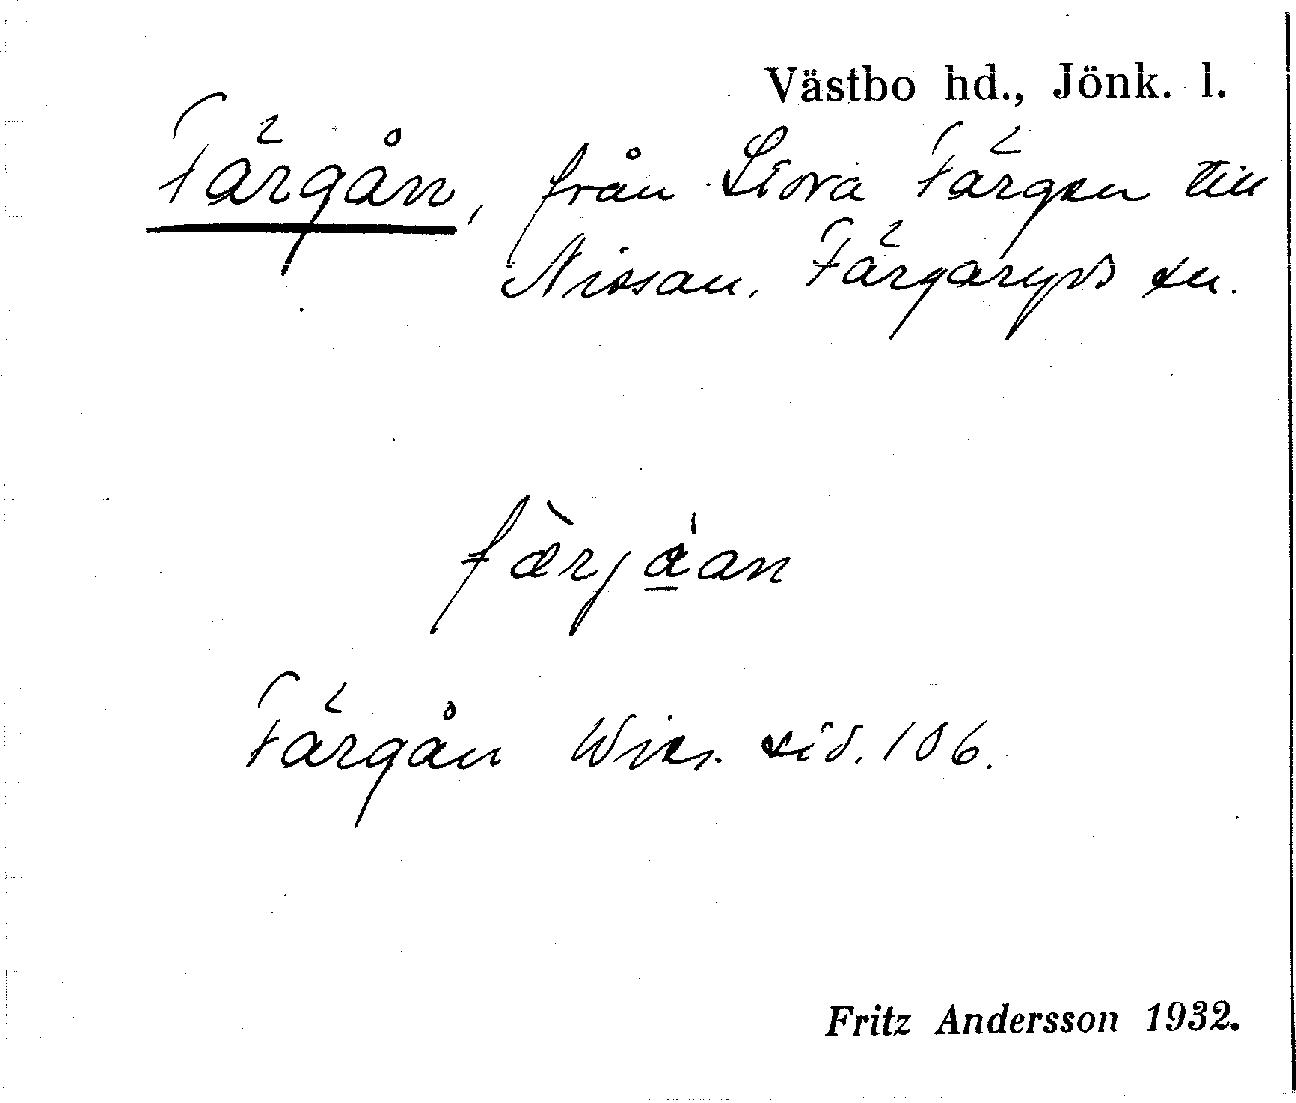 Västbo hd., Jönk. l.
Färgån, från Stora Färgen till
Nissan. Färgaryds sn.
færjåan
Färgån Wies. sid. 106.
Fritz Andersson 1932.